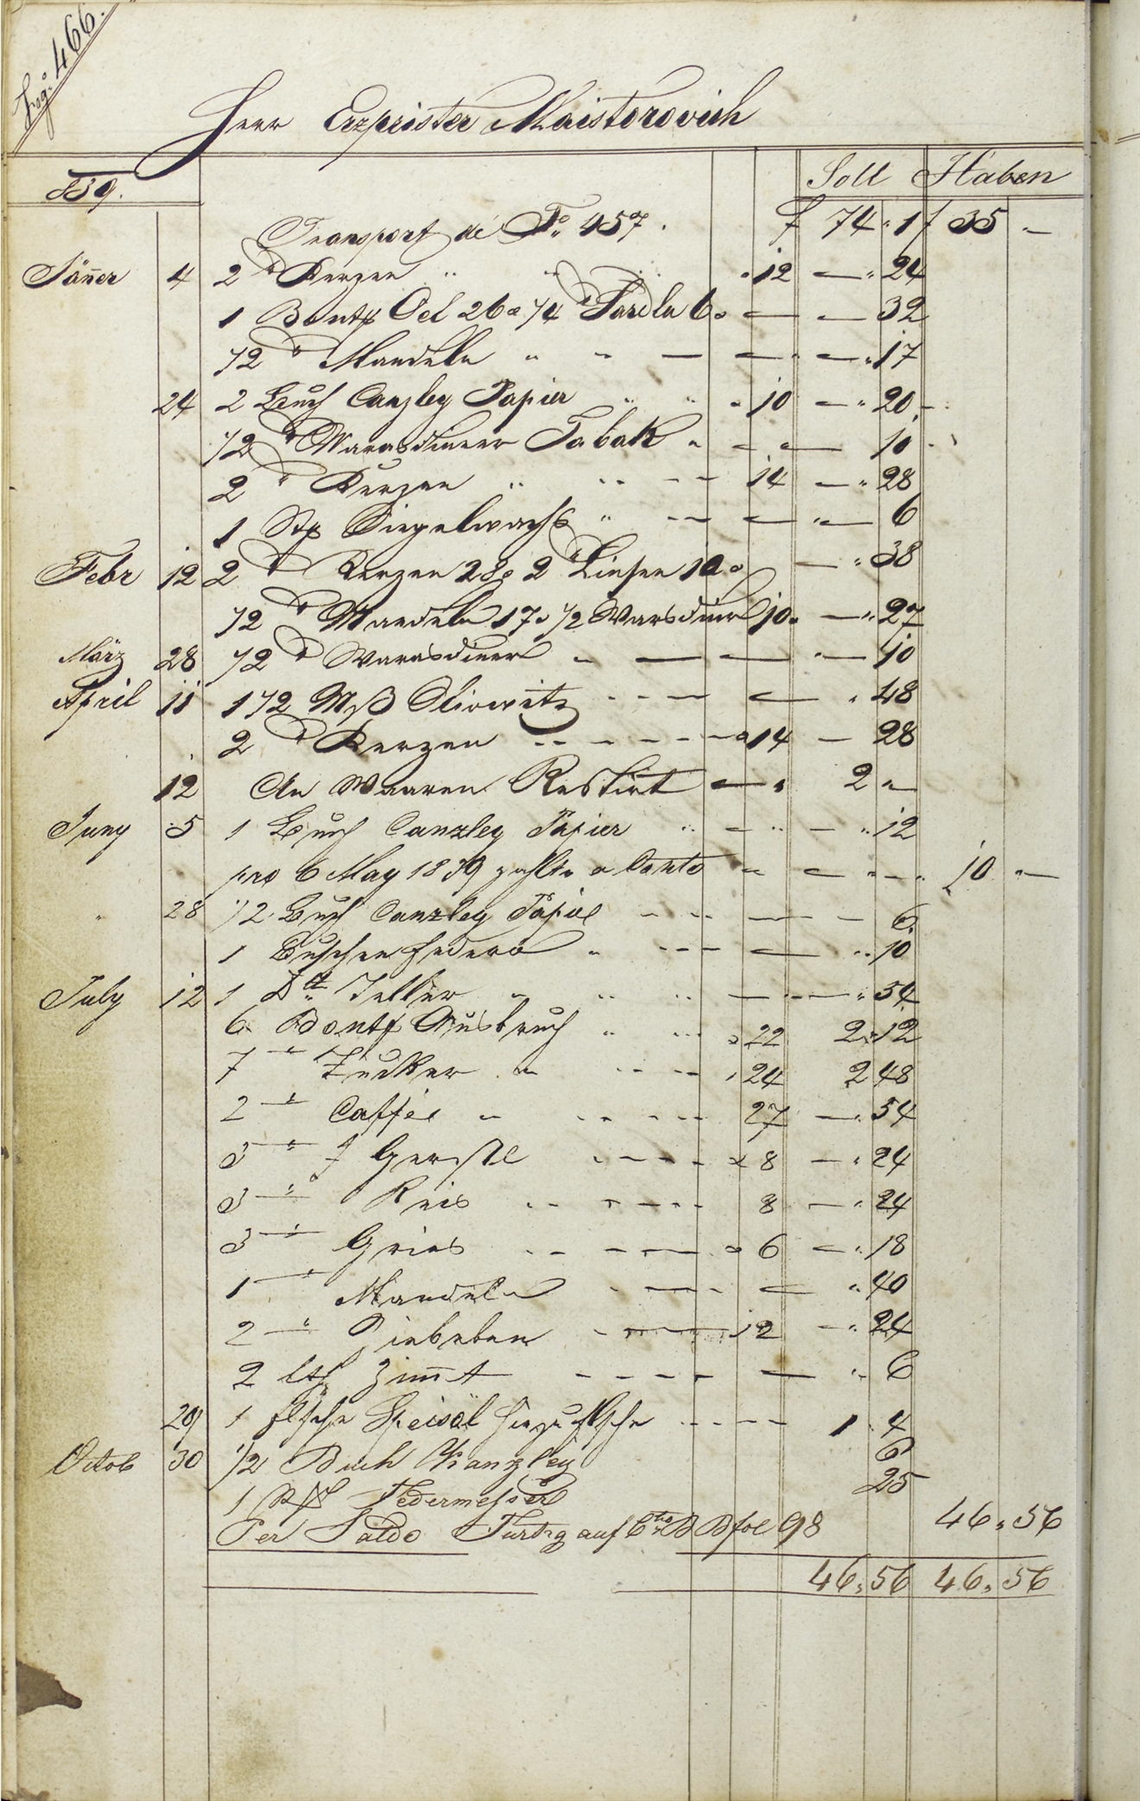 Fog. 466.
Herr Erzpriester Maistorovich
Soll Haben
839.
Transport de Fo. 457. f 74 " 1 f 35 —
Jäner 4 2 " Kerzen " " 12 — " 24
1 Bont Oel 26 " 1/4 " Sardln 6 " — — 32
1/2 " Mandeln " " — — — " 17
24 2 Buch Canzley Papier " " " 10 — " 20
1/2 " Warasdiner Tabak " — " — 10
2 " Kerzen " " — — 14 — " 28
1 Stk Siegelwachs " — — " — 6
Febr 12 2 " Kerzen 28 " 2 " Linsen 10 " — " 38
1/2 " Mandeln 17 " 1/2 Warsdiner 10 " — " 27
März 28 1/2 " Warasdiner " — — " — 10
April 11 1 1/2 Mß Slivovitz — — — " 48
2 " Kerzen — — — — 14 — 28
12 An Waaren Restirt — " 2 " —
Juny 5 1 Buch Canzley Papier " — " — " 12
pro 6 May 1839 zahlte a Conto " — — — 10 " —
28 1/2 Buch Canzley Papier — — — — 6
1 Buschen Federn " — — — " 10
July 12 1 Dtt Teller " " " — — " 54
6 " Bont Ausbruch " — " 22 2 " 12
7 — " Zucker " — — " 24 2 48
2 — " Caffee " — — — 27 — " 54
3 — " f Gerstl — — — — 8 — " 24
3 — " Reis — — — — 8 — " 24
3 — " Gries — — — — " 6 — " 18
1 — " Mandeln — — — — " 40
2 — " Ziebeben — — 12 — " 24
2 Lth Zimt — — — — — " 6
29 1 Flsche Speisöl hiezu Flsche — — — 1 " 4
Octob 30 1/2 Buch Kanzley 6
1 Stk Federmesser 25
Per Saldo Furtrg auf Cto B B fol 98 46 " 56
46 " 56 46 " 56